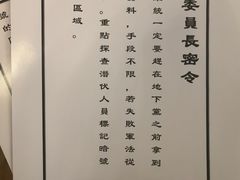 委員長密令
統一定要趕在地下黨之前拿到
料,手段不限,若失敗軍法從
。重點探查潛伏人員標記暗號
區域。
號
的